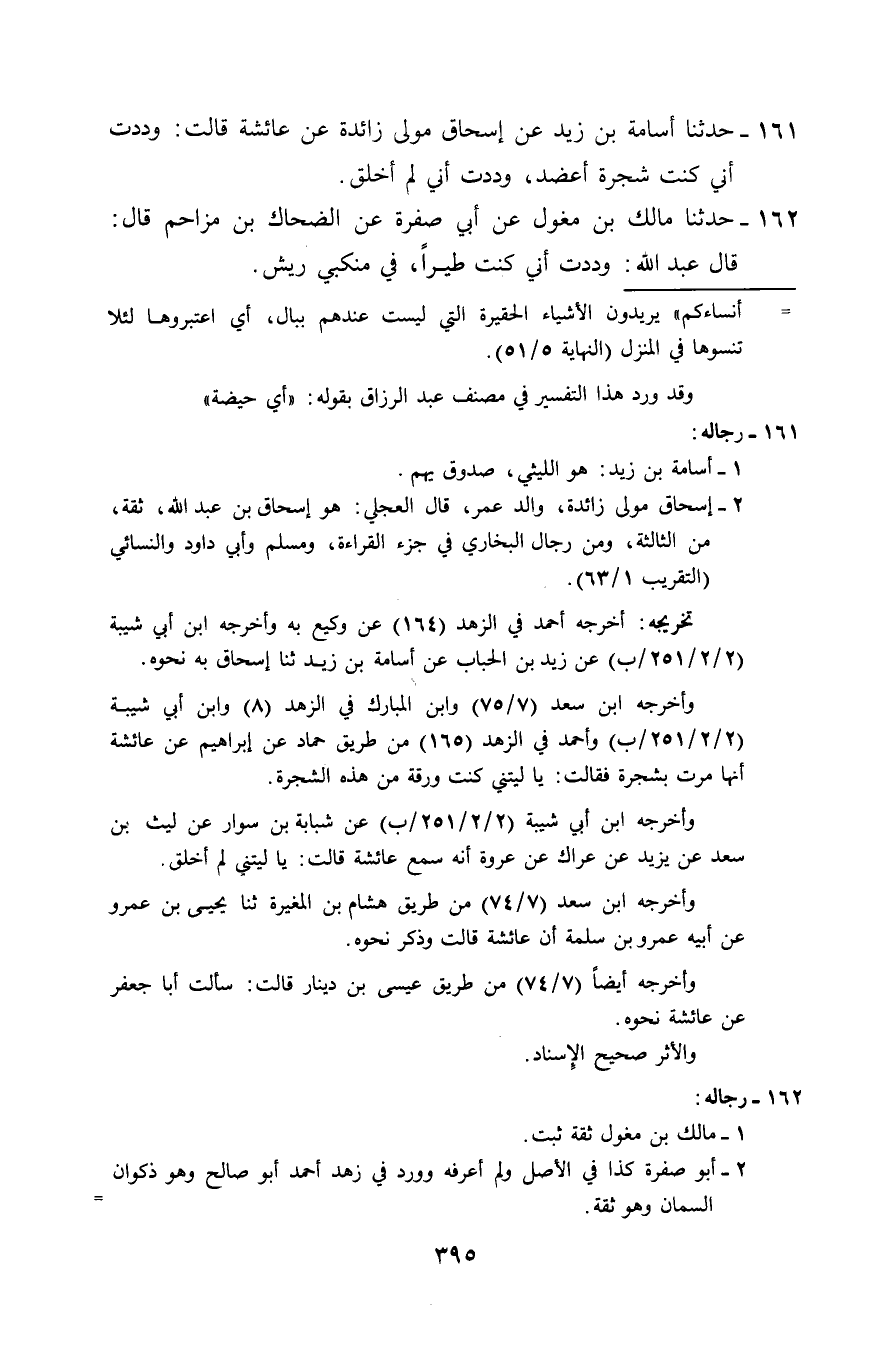 ١٦١ ـ حدثنا أسامة بن زيد عن إسحاق مولى زائدة عن عائشة قالت: وددت
أني كنت شجرة أعضد، وددت أني لم أخلق.
١٦٢ ـ حدثنا مالك بن مغول عن أبي صفرة عن الضحاك بن مزاحم قال:
قال عبد الله: وددت أني كنت طيراً، في منكبي ريش.
= أنساءكم» يريدون الأشياء الحقيرة التي ليست عندهم ببال، أي اعتبروها لئلا
تنسوها في المنزل (النهاية ٥/٥١).
وقد ورد هذا التفسير في مصنف عبد الرزاق بقوله: «أي حيضة»
١٦١ ـ رجاله:
١ ـ أسامة بن زيد: هو الليثي، صدوق يهم.
٢ ـ إسحاق مولى زائدة، والد عمر، قال العجلي: هو إسحاق بن عبد الله، ثقة،
من الثالثة، ومن رجال البخاري في جزء القراءة، ومسلم وأبي داود والنسائي
(التقريب ١/٦٣).
تخريجه: أخرجه أحمد في الزهد (١٦٤) عن وكيع به وأخرجه ابن أبي شيبة
(٢/٢/٢٥١/ب) عن زيد بن الحباب عن أسامة بن زيد ثنا إسحاق به نحوه.
وأخرجه ابن سعد (٧/٧٥) وابن المبارك في الزهد (٨) وابن أبي شيبة
(٢/٢/٢٥١/ب) وأحمد في الزهد (١٦٥) من طريق حماد عن إبراهيم عن عائشة
أنها مرت بشجرة فقالت: يا ليتني كنت ورقة من هذه الشجرة.
وأخرجه ابن أبي شيبة (٢/٢/٢٥١/ب) عن شبابة بن سوار عن ليث بن
سعد عن يزيد عن عراك عن عروة أنه سمع عائشة قالت: يا ليتني لم أخلق.
وأخرجه ابن سعد (٧/٧٤) من طريق هشام بن المغيرة ثنا يحيى بن عمرو
عن أبيه عمرو بن سلمة أن عائشة قالت وذكر نحوه.
وأخرجه أيضاً (٧/٧٤) من طريق عيسى بن دينار قالت: سألت أبا جعفر
عن عائشة نحوه.
والأثر صحيح الإسناد.
١٦٢ ـ رجاله:
١ ـ مالك بن مغول ثقة ثبت.
٢ ـ أبو صفرة كذا في الأصل ولم أعرفه وورد في زهد أحمد أبو صالح وهو ذكوان
السمان وهو ثقة. =
٣٩٥